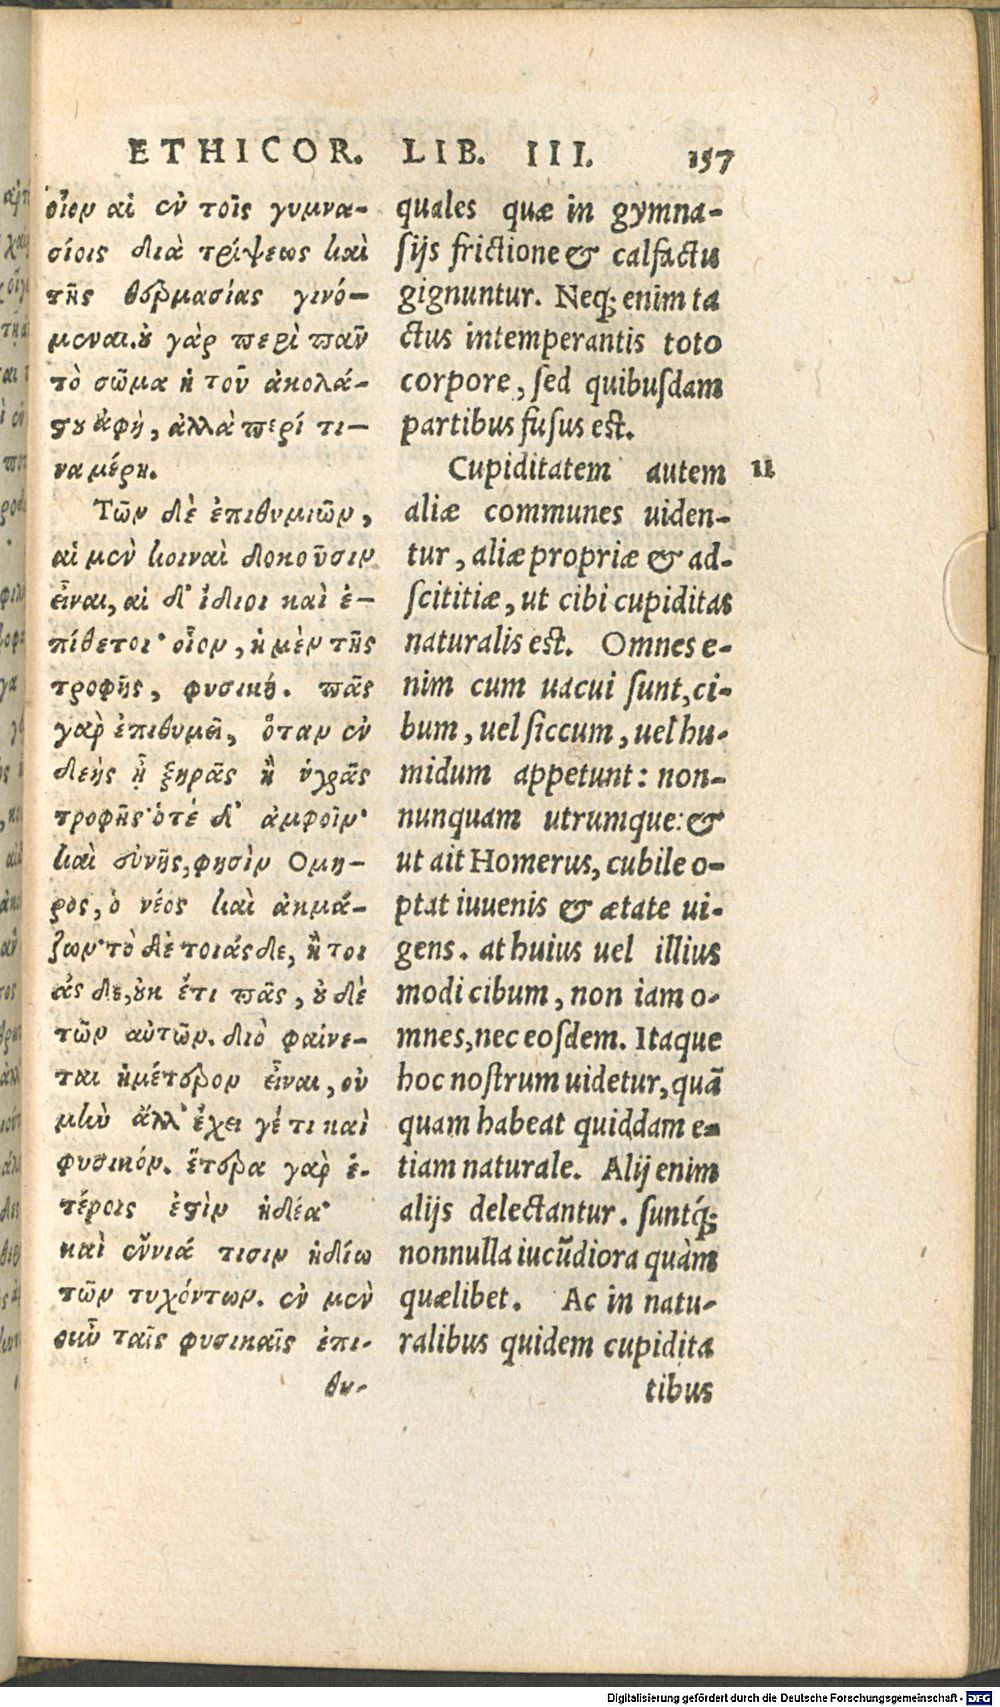 ETHICOR. LIB. III. 157
οἷον αἱ ἐν τοῖς γυμνα-
σίοις διὰ τρίψεως καὶ
τῆς θερμασίας γινό-
μεναι. ȣ γὰρ περὶ πᾶν
τὸ σῶμα ἡ τοῦ ἀκολά-
ϛȣ ἁφὴ, ἀλλὰ περί τι-
να μέρη.
Τῶν δὲ ἐπιθυμιῶν,
αἱ μὲν κοιναὶ δοκοῦσιν
εἶναι, αἱ δ' ἴδιοι καὶ ἐ-
πίθετοι· οἷον, ἡ μὲν τῆς
τροφῆς, φυσική. πᾶς
γὰρ ἐπιθυμεῖ, ὅταν ἐν
δεὴς ᾖ ξηρᾶς ἢ ὑγρᾶς
τροφῆς· ὁτέ δ' ἀμφοῖν·
καὶ εὐνῆς, φησὶν Ομη-
ρος, ὁ νέος καὶ ἀκμά-
ζων· τὸ δὲ τοιάς δε, ἢ τοι
ᾶς δε, ȣκ ἔτι πᾶς, ȣ δὲ
τῶν αὐτῶν. διὸ φαίνε-
ται ἡμέτερον εἶναι, ȣ
μὴν ἀλλ' ἔχει γέ τι καὶ
φυσικόν. ἕτερα γὰρ ἑ-
τέροις ἐϛὶν ἡδέα·
καὶ ἔνιά τισιν ἡδίω
τῶν τυχόντων. ἐν μὲν
οὖν ταῖς φυσικαῖς ἐπι-
θυ-
quales quæ in gymna-
sijs frictione & calfactu
gignuntur. Neq; enim ta
ctus intemperantis toto
corpore, sed quibusdam
partibus fusus est.
Cupiditatem autem 11
aliæ communes uiden-
tur, aliæ propriæ & ad-
scititiæ, ut cibi cupiditas
naturalis est. Omnes e-
nim cum uacui sunt, ci-
bum, uel siccum, uel hu-
midum appetunt: non-
nunquam utrumque: &
ut ait Homerus, cubile o-
ptat iuuenis & ætate ui-
gens. at huius uel illius
modi cibum, non iam o-
mnes, nec eosdem. Itaque
hoc nostrum uidetur, quã
quam habeat quiddam e-
tiam naturale. Alij enim
alijs delectantur. suntq́;
nonnulla iucũdiora quàm
quælibet. Ac in natu-
ralibus quidem cupidita
tibus
Digitalisierung gefördert durch die Deutsche Forschungsgemeinschaft - DFG